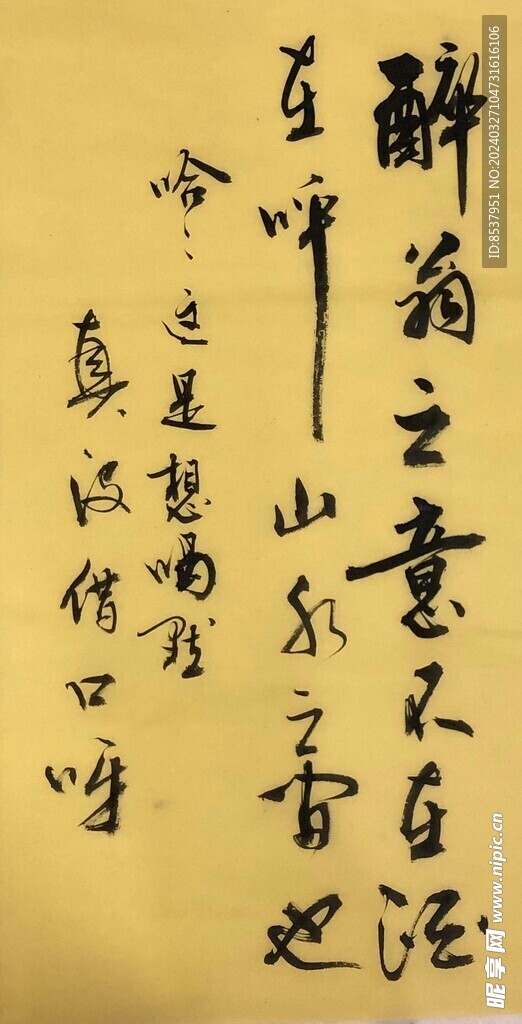 醉翁之意不在酒
在呼山水之间也
哈、这是想喝点
真没借口呀
ID:8537951 NO:20240327104731616106
昵享网 www.nipic.cn